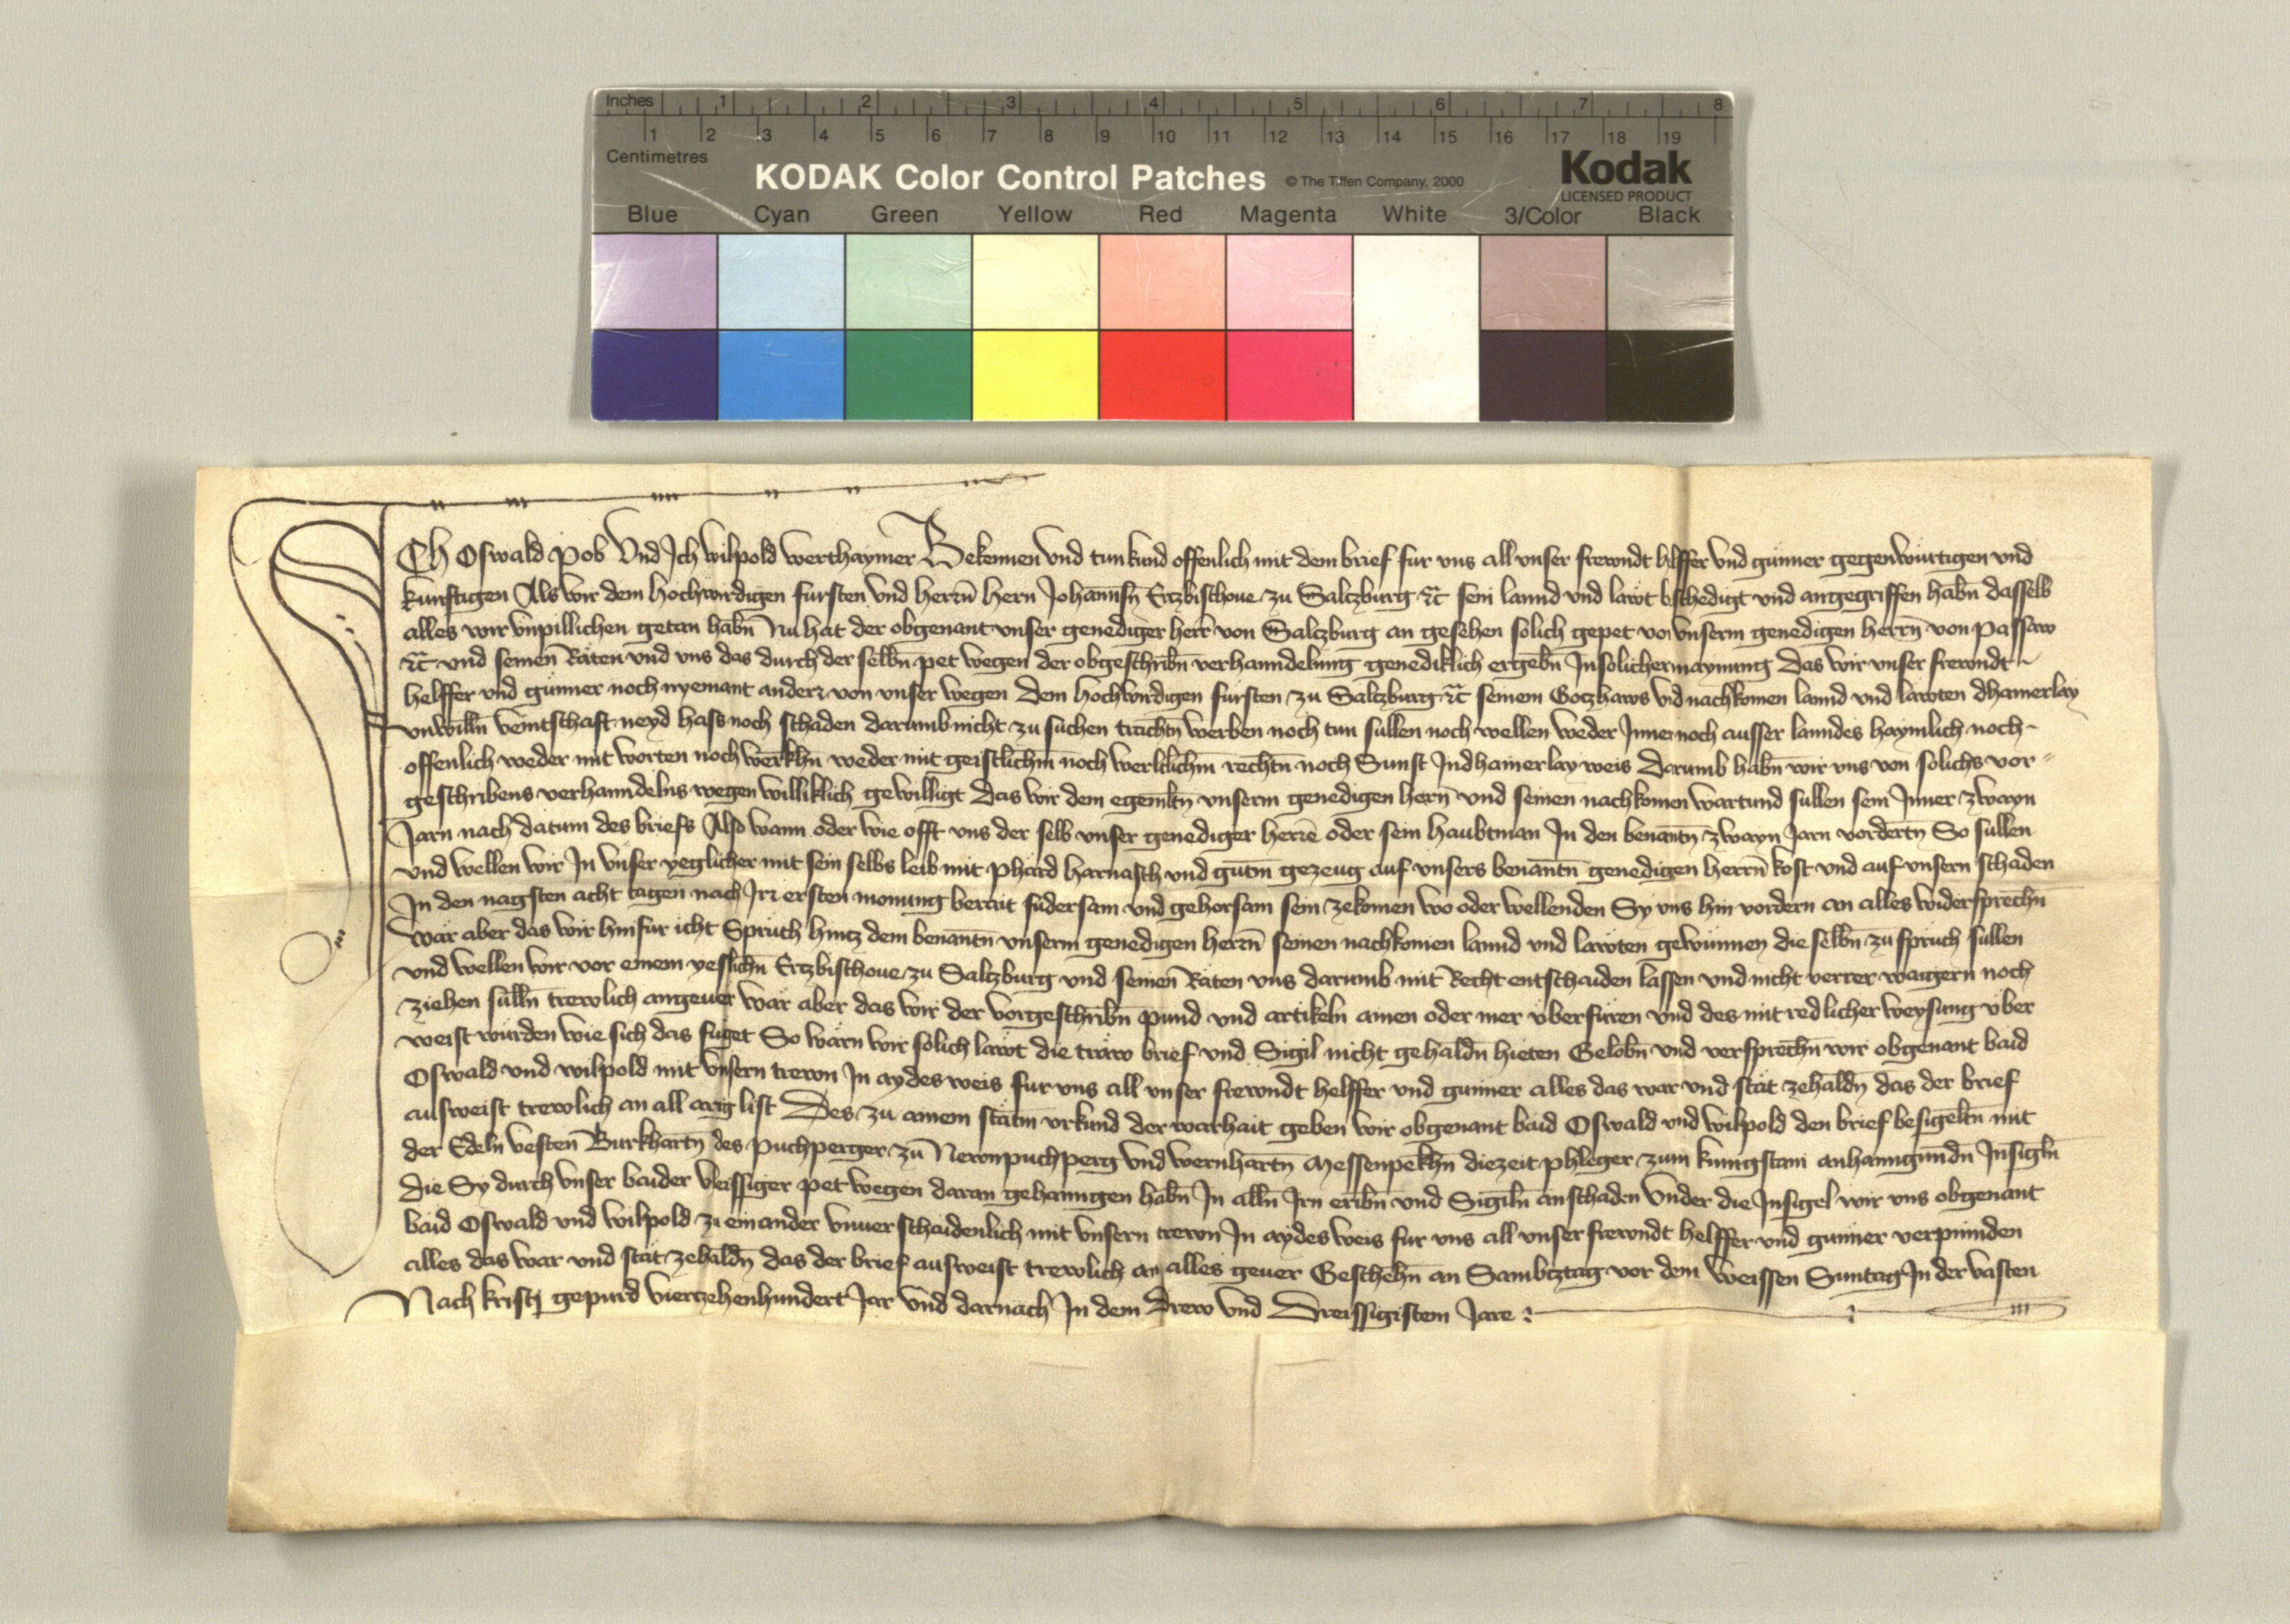 Inches 1 2 3 4 5 6 7 8
1 2 3 4 5 6 7 8 9 10 11 12 13 14 15 16 17 18 19
Centimetres
KODAK Color Control Patches © The Tiffen Company, 2000 Kodak
LICENSED PRODUCT
Blue Cyan Green Yellow Red Magenta White 3/Color Black
ICh Oswald Pob Vnd Ich wilpold werthaymer Bekennen vnd tun kund offenlich mit dem brief fur vns all vnser frewndt helffer vnd gunner gegenwurtigen vnd
kunftigen Als wir dem hochwirdigen fursten vnd herrn̄ hern Johannsn̄ Ertzbischoue zu Salczburg ꝛc̄ sein lannd vnd lawt beschedigt vnd angegriffen habn̄ dasselb
alles wir vnpillichen getan habn̄ Nu hat der obgenant vnser genediger herr von Salczburg an gesehen solich gepet von vnserm genedigen herrn̄ von Passaw
ꝛc̄ vnd seinen Räten vnd vns das durch der selbn̄ pet wegen der obgeschribn̄ verhanndelung genediklich ergebn̄ In solicher maynung das wir vnser frewndt
helffer vnd gunner noch nyemant ander von vnser wegen dem hochwirdigen fürsten zu Salczburg ꝛc̄ seinem Goczhaws vnd nachkomen lannd vnd lawten dhainerlay
vnwilln̄ veintschaft neyd hass noch schaden darumb nicht zu suchen trachtn̄ werben noch tun sullen noch wellen weder Inner noch ausser lanndes haymlich noch
offenlich weder mit worten noch werkhn̄ weder mit geistlichm̄ noch werltlichm̄ rechtn̄ noch Sunst In dhainerlay weis Darumb habn̄ wir vns von solichs vor
geschribens verhanndelns wegen williklich gewilligt Das wir dem egemltn̄ vnserm genedigen hern̄ vnd seinen nachkomen wartund sullen sein Inner zwayn
Jarn nach datum des briefs Also wann oder wie offt vns der selb vnser genediger herre oder sein haubtman In den benantn̄ zwayn Jarn vordertn̄ So sullen
vnd wellen wir In vnser yeglicher mit sein selbs leib mit phärd harnasch vnd gutm̄ gezeug auf vnsers benantn̄ genedigen herrn̄ kost vnd auf vnsern schaden
In den nagsten acht tagen nach Irr ersten monung berait fudersam vnd gehorsam sein zekomen wo oder wellenden Sy vns hin vordern an alles widersprechn̄
wär aber das wir hinfur icht Spruch hincz dem benantn̄ vnserm genedigen herrn̄ seinen nachkomen lannd vnd lawten gewunnen die selbn̄ zuspruch sullen
vnd wellen wir vor einem yeslichn̄ Ertzbischoue zu Salczburg vnd seinen Räten vns darumb mit Recht entschaiden lassen vnd nicht verrer waigern noch
ziehen sulln̄ trewlich angeuer wär aber das wir der vorgeschribn̄ pund vnd artikeln ainen oder mer vberfuren vnd des mit redlicher weysung vber
weist wurden wie sich das fuget So wärn wir solich lawt die träw brief vnd Sigil nicht gehaldn̄ hieten Gelobn̄ vnd versprechn̄ wir obgenant baid
Oswald vnd wilpold mit vnsern trewn In aydes weis fur vns all vnser frewndt helffer vnd gunner alles das war vnd stät zehaldn̄ das der brief
ausweist trewlich an all arig list Des zu ainem stätm vrkund der warhait geben wir obgenant baid Oswald vnd wilpold den brief besigeltn̄ mit
der Edeln vesten Burkhartn̄ des Puchperger zu Newnpuchperg vnd wernhartn̄ Messenpekhn̄ diezeit phleger zum kunigstain anhanngundn̄ Insigln̄
die Sy durch vnser baider vleissiger pet wegen daran gehanngen habn̄ In alln̄ Irn eribn̄ vnd Sigiln̄ an schaden vnder die Insigel wir vns obgenant
baid Oswald vnd wilpold zu einander vnuerschaidenlich mit vnsern trewn In aydes weis fur vns all vnser frewndt helffer vnd gunner verpinnden
alles das war vnd stät zehaldn̄ das der brief ausweist trewlich an alles geuer Geschehn̄ an Sambcztag vor dem weissen Suntag In der vasten
Nach kristj gepurd vierczehenhundert Jar vnd darnach In dem Drew vnd Dreissigistem Jare :